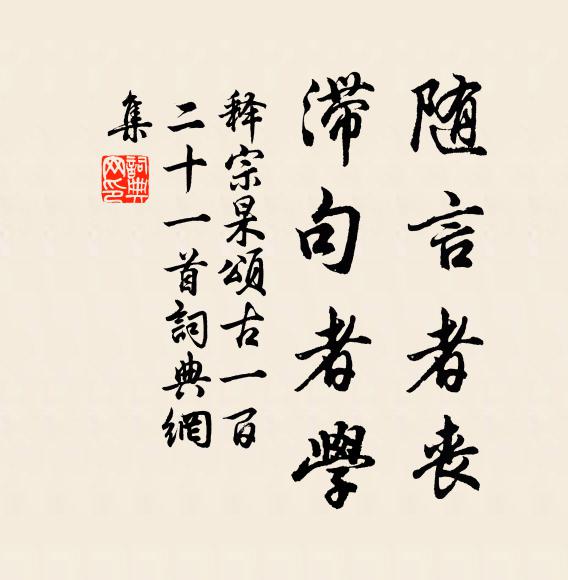 随言者丧
滞句者學
释宗杲頌古一百
二十一首詞典網
集
詞典
网印